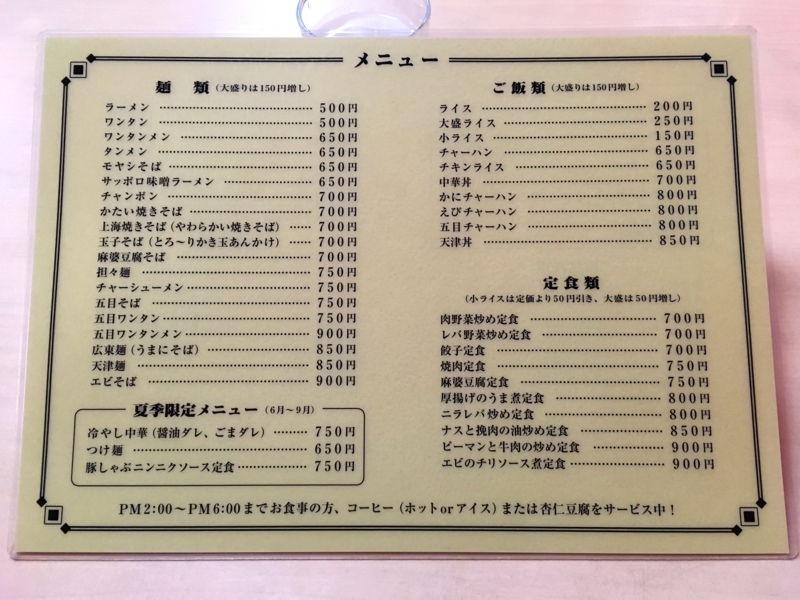 メニュー
麺 類（大盛りは150円増し）
ラーメン 500円
ワンタン 500円
ワンタンメン 650円
タンメン 650円
モヤシそば 650円
サッポロ味噌ラーメン 650円
チャンポン 700円
かたい焼きそば 700円
上海焼きそば（やわらかい焼きそば） 700円
玉子そば（とろ～りかき玉あんかけ） 700円
麻婆豆腐そば 700円
担々麺 750円
チャーシューメン 750円
五目そば 750円
五目ワンタン 750円
五目ワンタンメン 900円
広東麺（うまにそば） 850円
天津麺 850円
エビそば 900円
夏季限定メニュー（6月～9月）
冷やし中華（醤油ダレ、ごまダレ） 750円
つけ麺 650円
豚しゃぶニンニクソース定食 750円
ご飯類（大盛りは150円増し）
ライス 200円
大盛ライス 250円
小ライス 150円
チャーハン 650円
チキンライス 650円
中華丼 700円
かにチャーハン 800円
えびチャーハン 800円
五目チャーハン 800円
天津丼 850円
定食類
（小ライスは定価より50円引き、大盛は50円増し）
肉野菜炒め定食 700円
レバ野菜炒め定食 700円
餃子定食 700円
焼肉定食 750円
麻婆豆腐定食 750円
厚揚げのうま煮定食 800円
ニラレバ炒め定食 800円
ナスと挽肉の油炒め定食 850円
ピーマンと牛肉の炒め定食 900円
エビのチリソース煮定食 900円
PM2:00～PM6:00までお食事の方、コーヒー（ホットorアイス）または杏仁豆腐をサービス中！